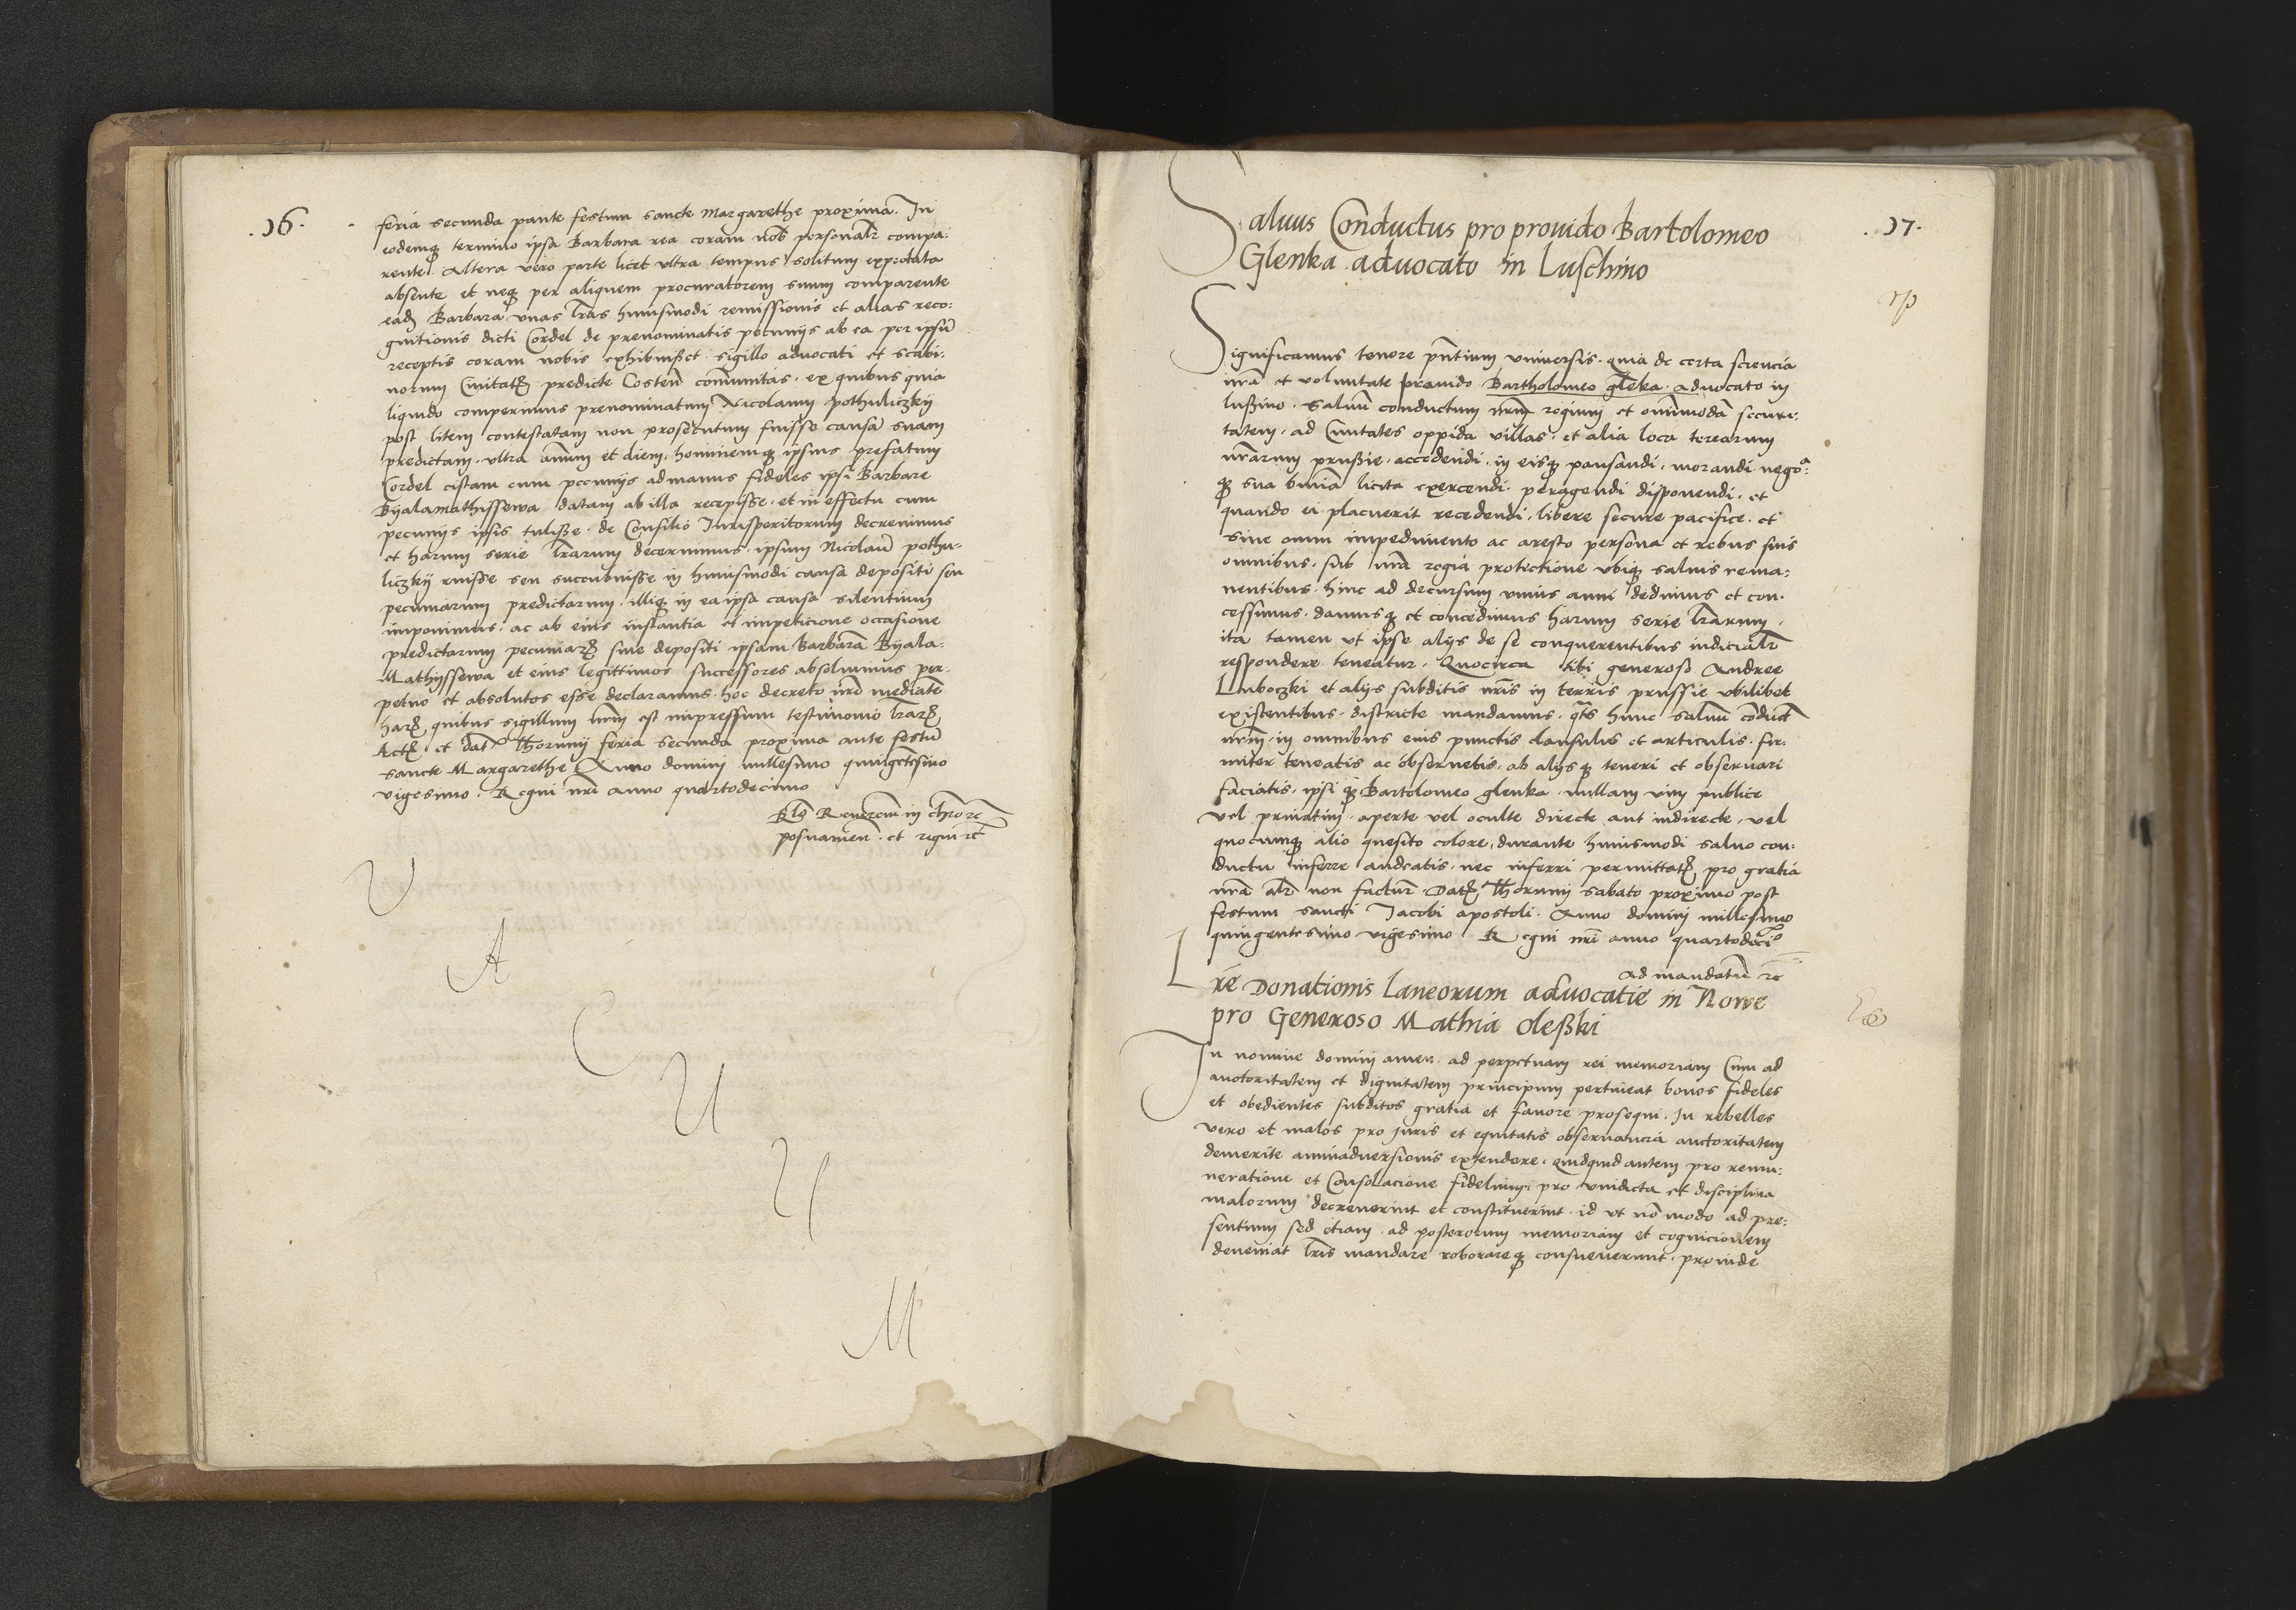 .16.
feria secunda pante festum sancte Margarethe proxima. In
eodemq termino ipsa Barbara rea coram nob personalr compa:
rente. Altera vero parte licet ultra tempus solitum expectata
absente et neq per aliquem procuratorem suum comparente
ead Barbara unas lras huiusmodi remissionis et alias reco:
gnitionis dicti Cordel de prenominatis pecunijs ab ea per ipsu
receptis coram nobis exhibuisset. sigillo advocati et scabi:
norum Civitat predicte Costen comunitas. ex quibus quia
liquido comperimus prenominatum Nicolaum pothuliczkij
post litem contestatam non prosecutum fuisse causa suam
predictam. ultra annum et diem. hominemq ipsius prefatum
Cordel cistam cum pecunijs ad manus fideles ipsi Barbare
Byalamathissewa datam ab illa recepisse. et in effectu cum
pecunijs ipsis tulisse. de Consilio Jurisperitorum decrevimus
et harum serie lrarum decernimus. ipsum Nicolau pothu-
liczkij ruisse seu succubuisse in huiusmodi causa depositi seu
pecuniarum predictarum. illiq in ea ipsa causa silentium
imponimus. ac ab eius instantia et impeticione occasione
predictarum pecuniar sive depositi ipsam Barbara Byala-
Mathyssewa et eius legittimos successores absolvimus per-
petuo et absolutos esse declaramus. hoc decreto nro mediate
har quibus sigillum nrm est impressum testimonio lrar
Act et dat Thorunij feria secunda proxima ante festu
sancte Margarethe Anno domini millesimo quingetesimo
vigesimo. Regni nri anno quartodecimo
Rlo Reverem in chro rc
posnanien. et regni rc
V
A
C
U
U
M
.17.
Salvus Conductus pro provido Bartolomeo
Glenka advocato in Luschino
Significamus tenore pntium universis. quia de certa sciencia
nra et voluntate provido Bartholomeo glenka. advocato in
lußino. Salvu conductum nrm regium et omimoda securi:
tatem. ad Civitates oppida villas. et alia loca terrarum
nrarum prussie. accedendi. in eisq pausandi. morandi nego:
q sua omia licita exercendi. peragendi disponendi. et
quando ei placuerit recedendi. libere secure pacifice. et
sine omni impedimento ac aresto persona et rebus suis
omnibus. sub nra regia protectione ubiq salvis rema:
nentibus. hinc ad decursum unius anni dedimus et con.
cessimus. damusq et concedimus harum serie lrarum.
ita tamen ut ipse alijs de se conquerentibus iudicialr
respondere teneatur. Quocirca tibi generoso Andree
Luboczki et alijs subditis nris in terris prussie ubilibet
existentibus. districte mandamus. qts hunc salvu conduct
nrm. in omnibus eius punctis clausulis et articulis. fir.
miter teneatis ac observetis. ab alijsq teneri et observari
faciatis. ipsiq Bartolomeo glenka. nullam vim publice
vel privatim. aperte vel oculte directe aut indirecte. vel
quocumq alio quesito colore. durante huiusmodi salvo con:
ductu inferre audeatis. nec inferri permittat pro gratia
nra alr non factur. Dat Thorunij sabato proximo post
festum sancti Jacobi apostoli. Anno domini millesimo
quingentesimo vigesimo Regni nri anno quartodecio
ad mandatu rc
Lre Donationis laneorum advocatie in Nowe
pro Generoso Mathia oleßki
In nomine domini amen. ad perpetuam rei memoriam Cum ad
auctoritatem et dignitatem principum pertineat bonos fideles
et obedientes subditos gratia et favore prosequi. In rebelles
vero et malos pro juris et equitatis observancia auctoritatem
demerite animadversionis extendere. quidquid autem pro remu:
neratione et Consolacione fidelium. pro vindicta et disciplina
malorum decreverint et constituerint. id ut no modo ad pre:
sentium sed etiam. ad posterorum memoriam et cognicionem
deveniat lris mandare roborareq consueverunt. proinde